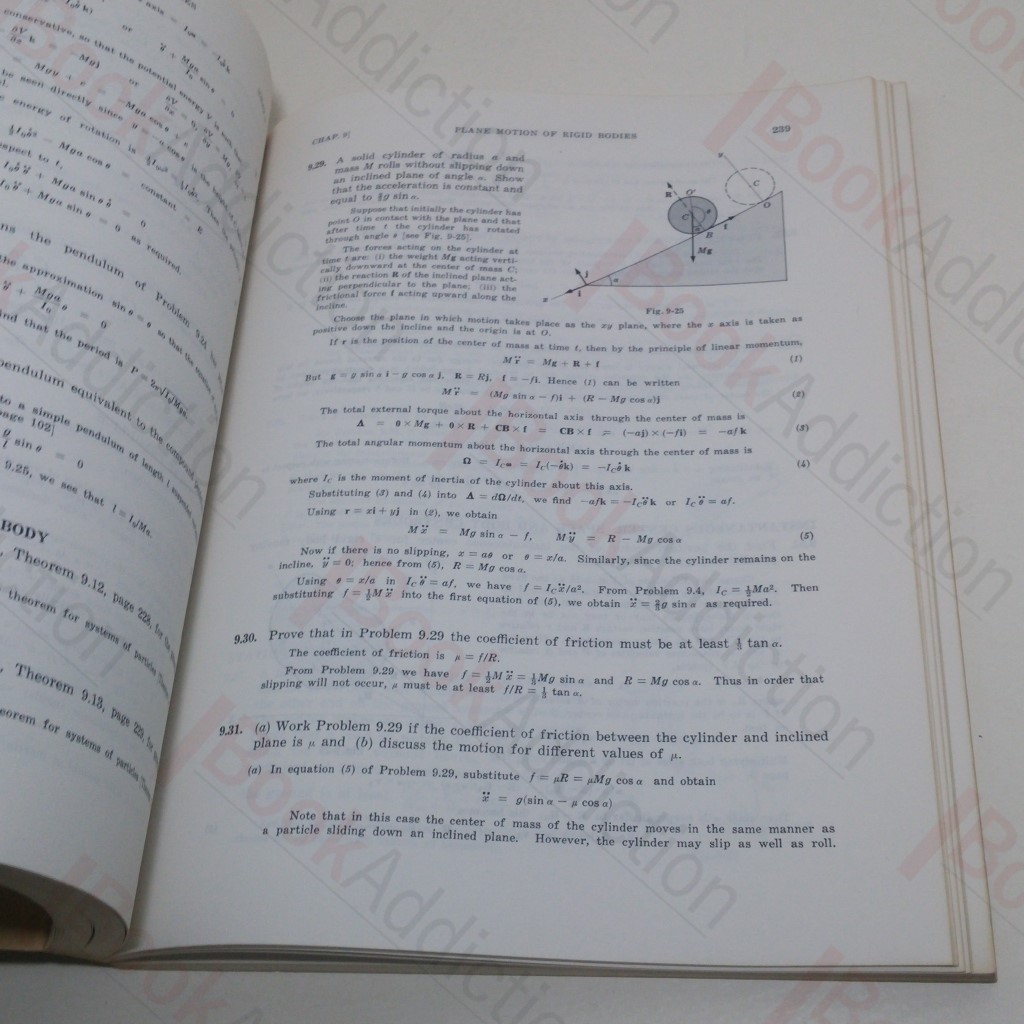 conservative, so that the potential energy V is such that
be seen directly since
energy of rotation is
constant = E
as required.
ns the pendulum of Problem 9.24
the approximation sin θ = θ so that the equation
nd that the period is P = 2π√I₀/Mga.
pendulum equivalent to the compound
to a simple pendulum of length l
page 102]
g/l sin θ = 0
9.25, we see that l = I₀/Ma.
BODY
, Theorem 9.12, page 228, for the
theorem for systems of particles
, Theorem 9.13, page 229, for
eorem for systems of particles
CHAP. 9] PLANE MOTION OF RIGID BODIES 239
9.29. A solid cylinder of radius a and
mass M rolls without slipping down
an inclined plane of angle α. Show
that the acceleration is constant and
equal to ⅔g sin α.
Suppose that initially the cylinder has
point O in contact with the plane and that
after time t the cylinder has rotated
through angle θ [see Fig. 9-25].
The forces acting on the cylinder at
time t are: (i) the weight Mg acting verti-
cally downward at the center of mass C;
(ii) the reaction R of the inclined plane act-
ing perpendicular to the plane; (iii) the
frictional force f acting upward along the
incline.
y
C
O
R
O′
C
B
f
Mg
j
α
i
x
Fig. 9-25
Choose the plane in which motion takes place as the xy plane, where the x axis is taken as
positive down the incline and the origin is at O.
If r is the position of the center of mass at time t, then by the principle of linear momentum,
M r̈ = Mg + R + f (1)
But g = g sin α i − g cos α j, R = Rj, f = −fi. Hence (1) can be written
M r̈ = (Mg sin α − f)i + (R − Mg cos α)j (2)
The total external torque about the horizontal axis through the center of mass is
Λ = 0 × Mg + 0 × R + CB × f = CB × f = (−aj) × (−fi) = −af k (3)
The total angular momentum about the horizontal axis through the center of mass is
Ω = I_C ω = I_C(−θ̇k) = −I_C θ̇ k (4)
where I_C is the moment of inertia of the cylinder about this axis.
Substituting (3) and (4) into Λ = dΩ/dt, we find −afk = −I_C θ̈ k or I_C θ̈ = af.
Using r = xi + yj in (2), we obtain
M ẍ = Mg sin α − f, M ÿ = R − Mg cos α (5)
Now if there is no slipping, x = aθ or θ = x/a. Similarly, since the cylinder remains on the
incline, ÿ = 0; hence from (5), R = Mg cos α.
Using θ = x/a in I_C θ̈ = af, we have f = I_C ẍ/a². From Problem 9.4, I_C = ½Ma². Then
substituting f = ½M ẍ into the first equation of (5), we obtain ẍ = ⅔g sin α as required.
9.30. Prove that in Problem 9.29 the coefficient of friction must be at least ⅓ tan α.
The coefficient of friction is μ = f/R.
From Problem 9.29 we have f = ½M ẍ = ⅓Mg sin α and R = Mg cos α. Thus in order that
slipping will not occur, μ must be at least f/R = ⅓ tan α.
9.31. (a) Work Problem 9.29 if the coefficient of friction between the cylinder and inclined
plane is μ and (b) discuss the motion for different values of μ.
(a) In equation (5) of Problem 9.29, substitute f = μR = μMg cos α and obtain
ẍ = g(sin α − μ cos α)
Note that in this case the center of mass of the cylinder moves in the same manner as
a particle sliding down an inclined plane. However, the cylinder may slip as well as roll.
BookAddiction